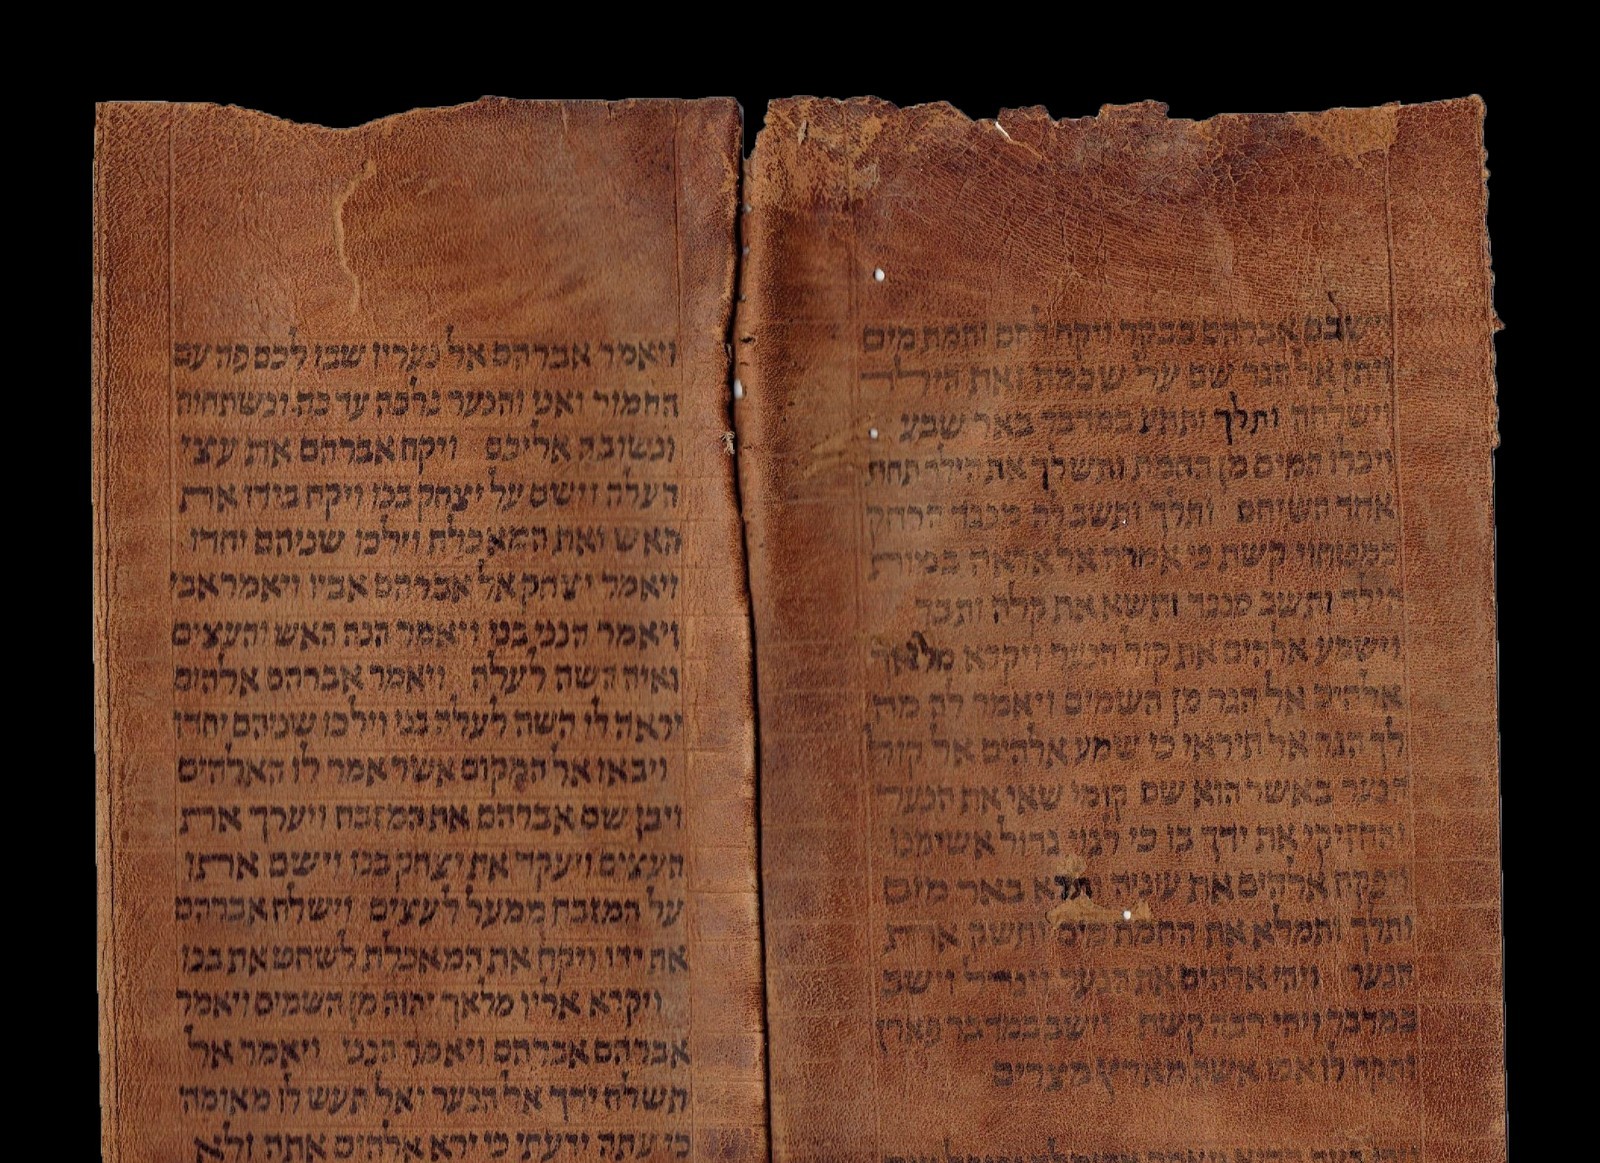 וישכם אברהם בבקר ויקח לחם וחמת מים
ויתן אל הגר שם על שכמה ואת הילד
וישלחה ותלך ותתע במדבר באר שבע
ויכלו המים מן החמת ותשלך את הילד תחת
אחד השיחם ותלך ותשב לה מנגד הרחק
כמטחוי קשת כי אמרה אל אראה במות
הילד ותשב מנגד ותשא את קלה ותבך
וישמע אלהים את קול הנער ויקרא מלאך
אלהים אל הגר מן השמים ויאמר לה מה
לך הגר אל תיראי כי שמע אלהים אל קול
הנער באשר הוא שם קומי שאי את הנער
והחזיקי את ידך בו כי לגוי גדול אשימנו
ויפקח אלהים את עיניה ותרא באר מים
ותלך ותמלא את החמת מים ותשק את
הנער ויהי אלהים את הנער ויגדל וישב
במדבר ויהי רבה קשת וישב במדבר פארן
ותקח לו אמו אשה מארץ מצרים
ויאמר אברהם אל נעריו שבו לכם פה עם
החמור ואני והנער נלכה עד כה ונשתחוה
ונשובה אליכם ויקח אברהם את עצי
העלה וישם על יצחק בנו ויקח בידו את
האש ואת המאכלת וילכו שניהם יחדו
ויאמר יצחק אל אברהם אביו ויאמר אבי
ויאמר הנני בני ויאמר הנה האש והעצים
ואיה השה לעלה ויאמר אברהם אלהים
יראה לו השה לעלה בני וילכו שניהם יחדו
ויבאו אל המקום אשר אמר לו האלהים
ויבן שם אברהם את המזבח ויערך את
העצים ויעקד את יצחק בנו וישם אתו
על המזבח ממעל לעצים וישלח אברהם
את ידו ויקח את המאכלת לשחט את בנו
ויקרא אליו מלאך יהוה מן השמים ויאמר
אברהם אברהם ויאמר הנני ויאמר אל
תשלח ידך אל הנער ואל תעש לו מאומה
כי עתה ידעתי כי ירא אלהים אתה ולא